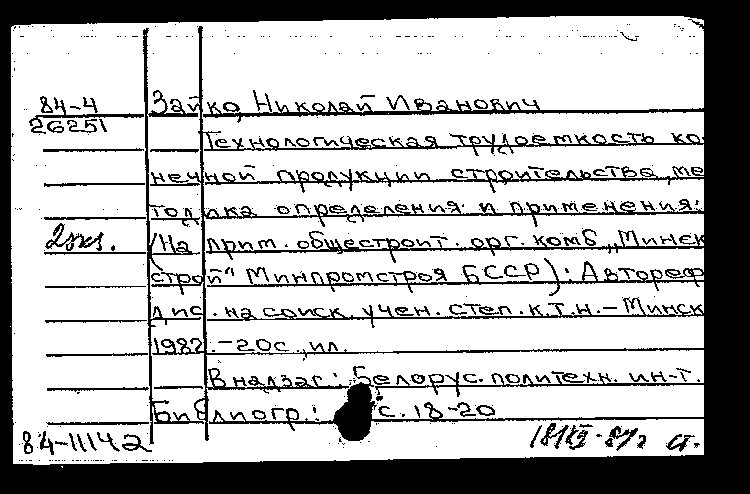 84-4 Зайко, Николай Иванович
26251
Технологическая трудоемкость ко
нечной продукции строительства, ме
тодика определения и применения:
2экз. (На прим. общестроит. орг. комб „Минск
строй" Минпромстроя БССР): Автореф
дис. на соиск. учен. степ. к.т.н. – Минск
1982. – 20с., ил.
В надзаг: Белорус. политехн. ин-т.
Библиогр.: с. 18-20
84-11142